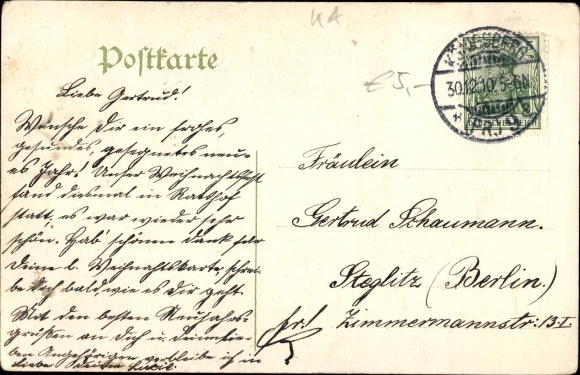 KA
Postkarte
€5,-
KÖNIGSBERG
30.12.10. 5-6N.
DEUTSCHES REICH
Liebe Gertrud!
Wünsche Dir ein frohes,
gesundes, gesegnetes neu-
es Jahr! Unser Weihnachtsfest
fand diesmal in Ratshof
statt, es war wieder sehr
schön. Hab' schönen Dank für
Deine l. Weihnahtskarte, schrei-
be doch bald, wie es Dir geht.
Mit den besten Neujahrs-
grüßen an Dich u. Deine lie-
ben Angehörigen verbleibe ich in
Liebe Deine
Fräulein
Gertrud Schaumann.
Steglitz (Berlin.)
Zimmermannstr: 13 I